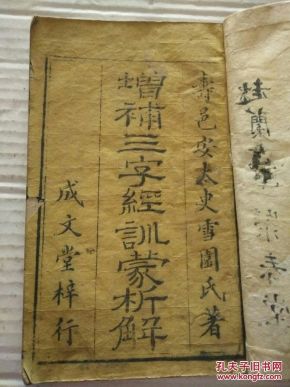 壽邑安太史雪園氏著
增補三字經訓蒙析解
成文堂梓行
趙蘭
孔夫子旧书网